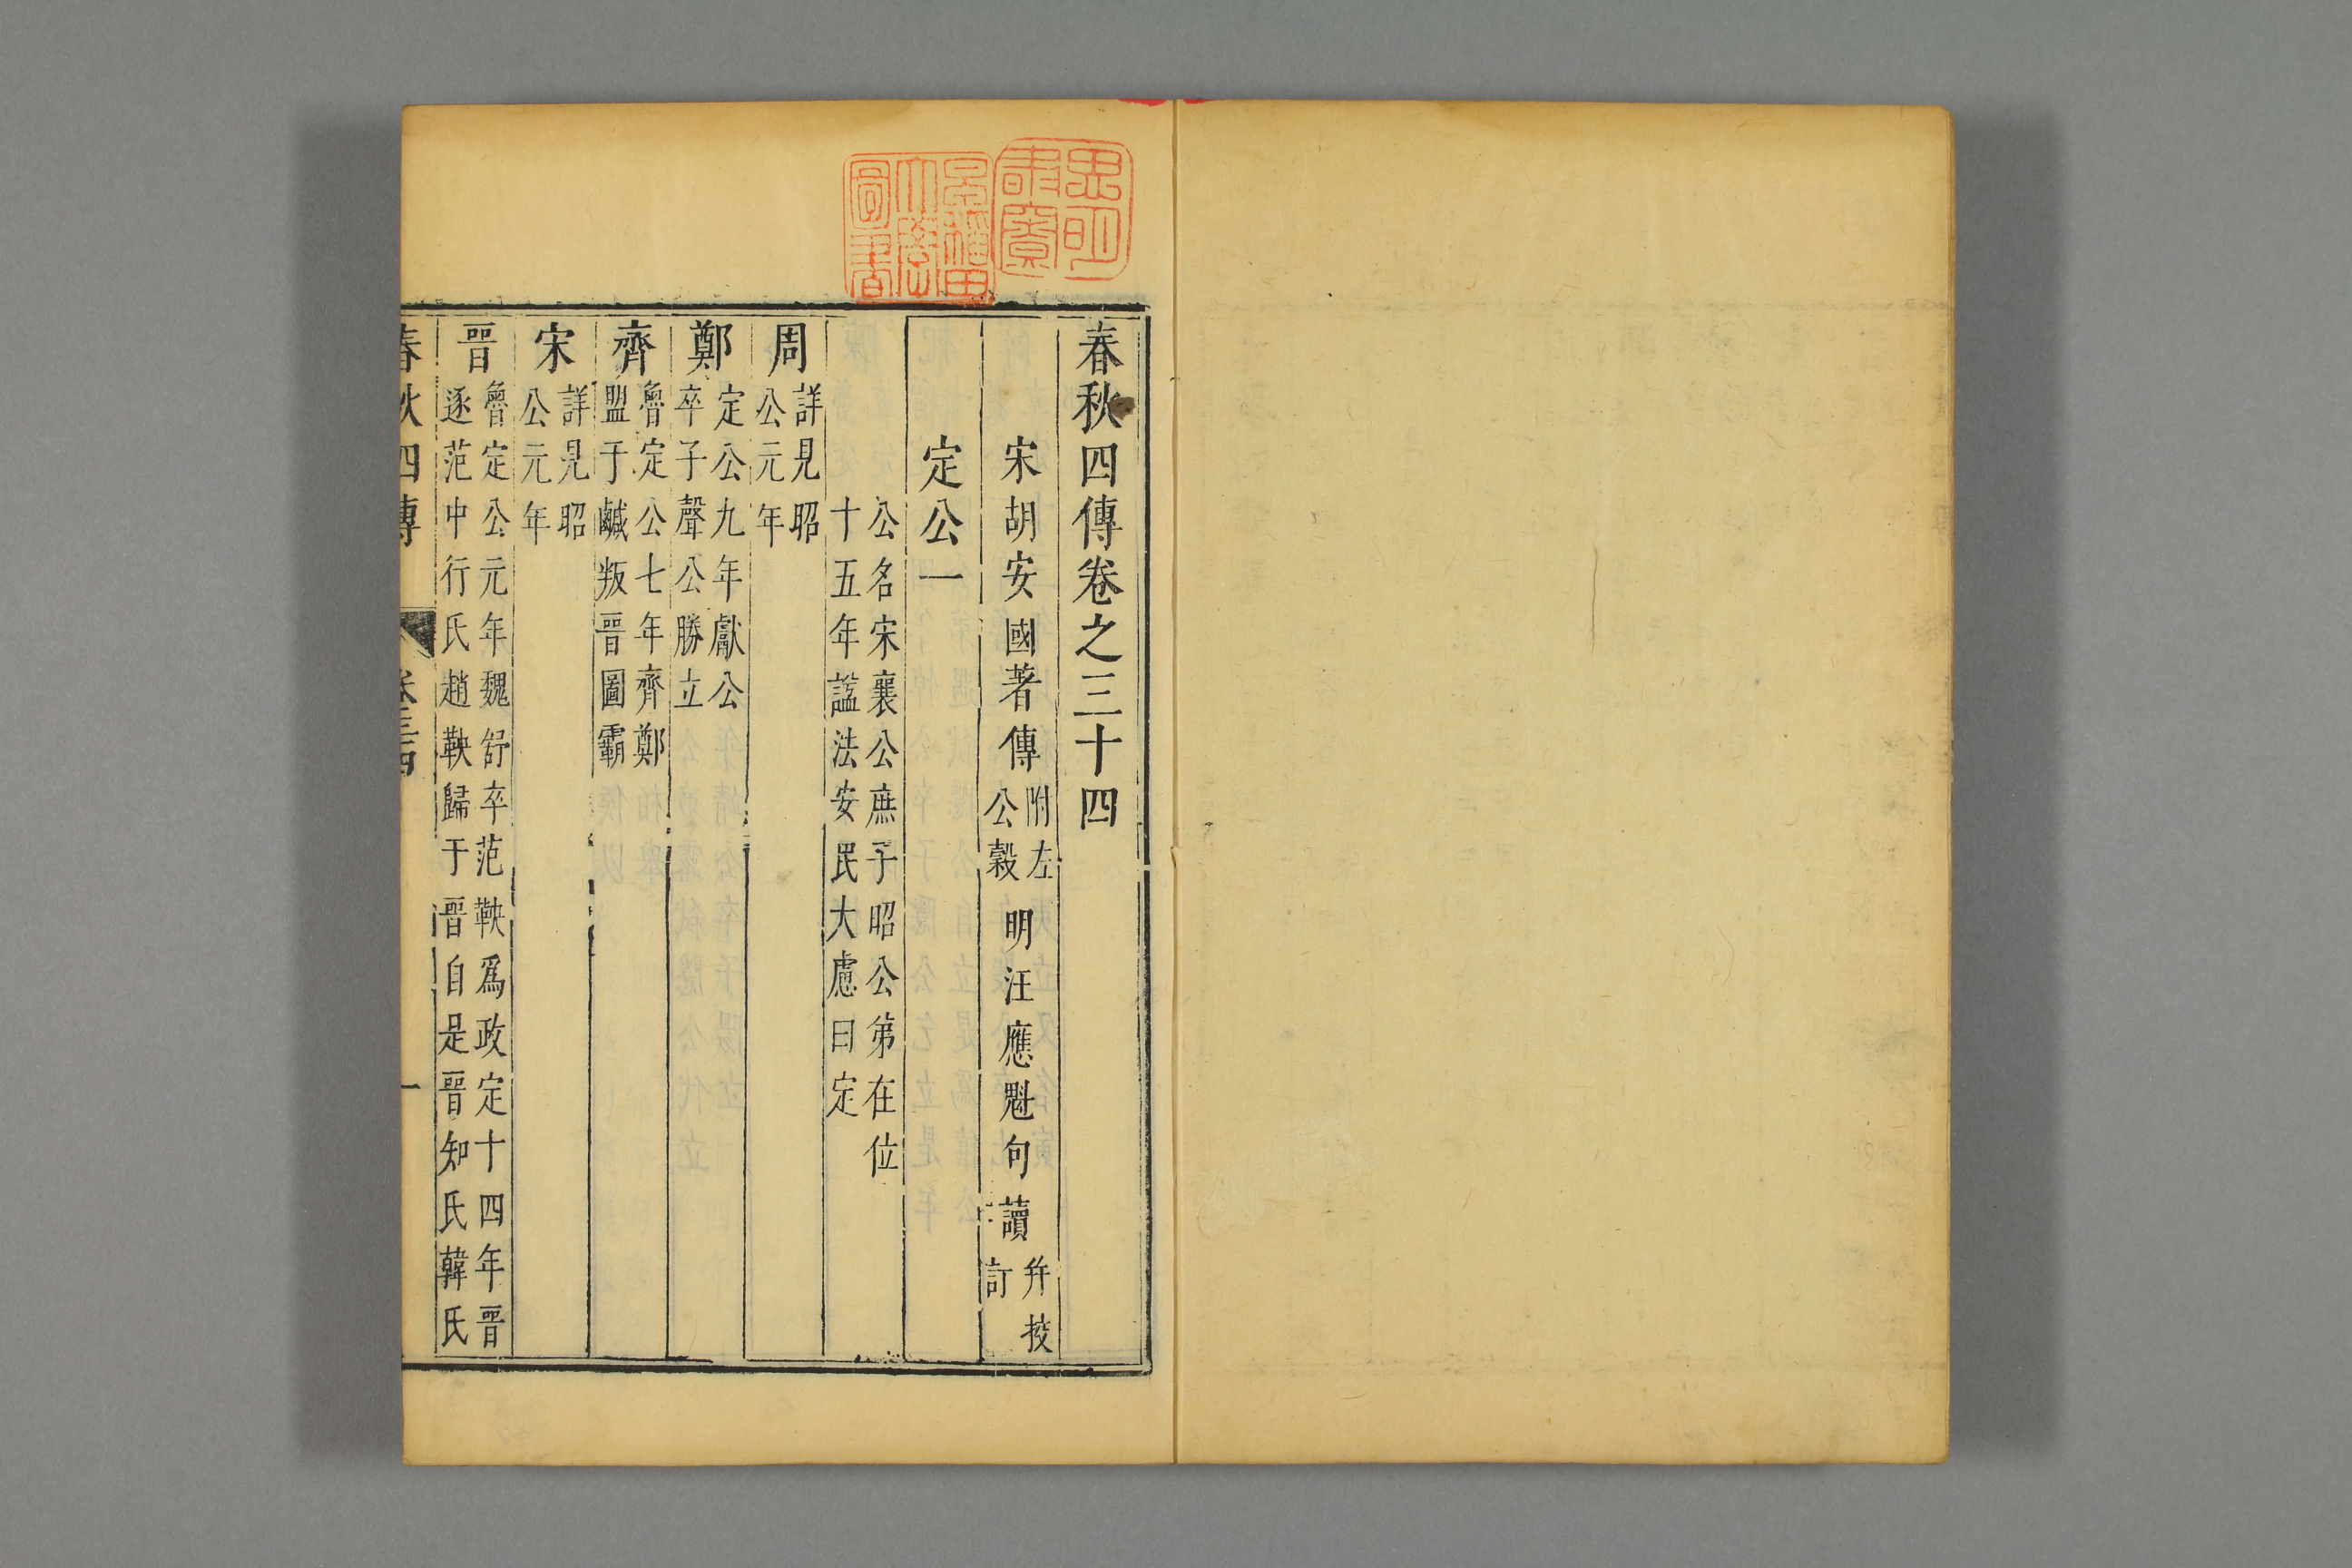 春秋四傳卷之三十四
宋胡安國著傳附左公穀 明汪應魁句讀并挍訂
定公一
公名宋襄公庶子昭公弟在位
十五年諡法安民大慮曰定
周 詳見昭
公元年
鄭 定公九年獻公
卒子聲公勝立
齊 魯定公七年齊鄭
盟于鹹叛晉圖霸
宋 詳見昭
公元年
晉 魯定公元年魏舒卒范鞅爲政定十四年晉
逐范中行氏趙鞅歸于晉自是晉知氏韓氏
春秋四傳 卷三十四 一
早稻田大學圖書